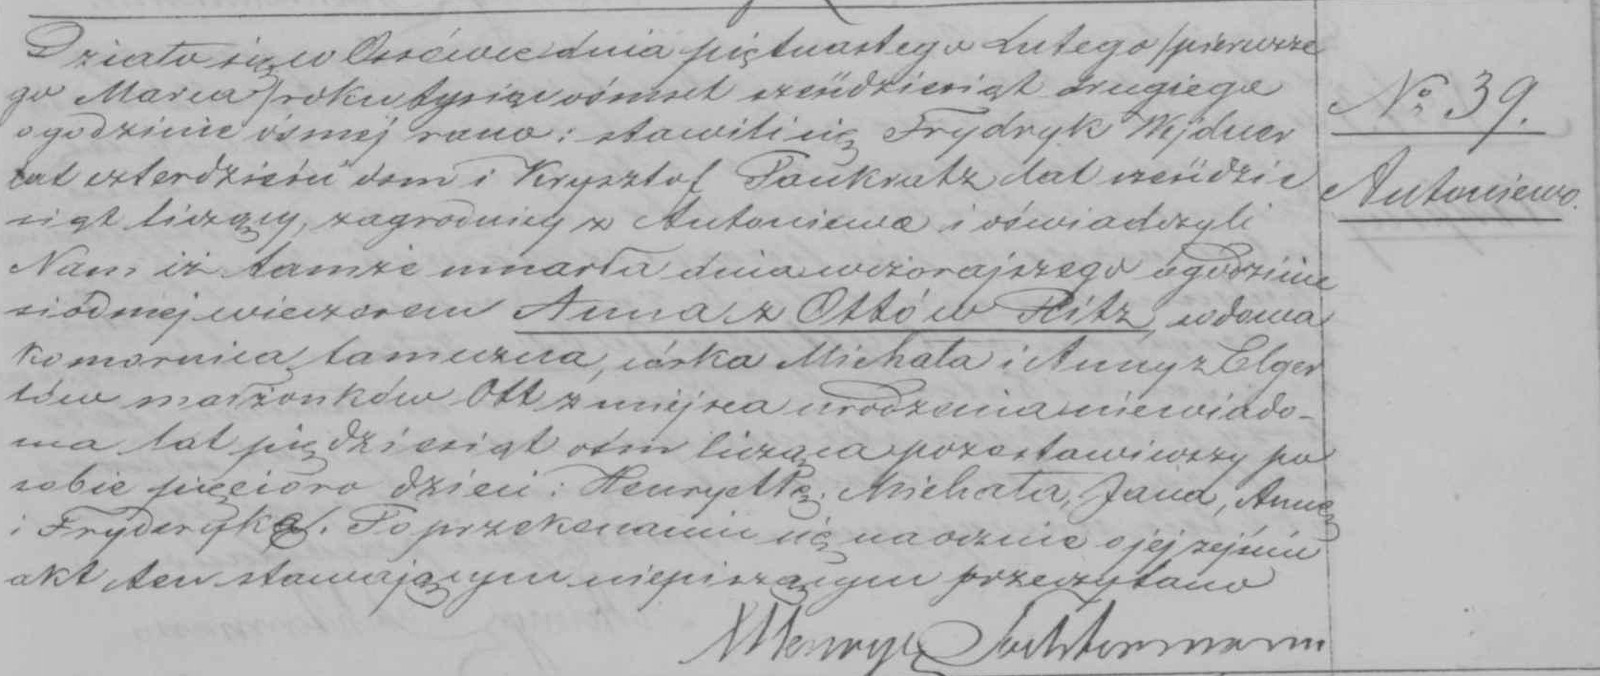 Działo się w Ossówce dnia piętnastego Lutego /pierwsze
go Marca/ roku tysiąc ośmset sześdziesiąt drugiego
o godzinie ósméj rano: stawili się Frydryk Wejdner
lat czterdzieści ósm i Krysztof Pankratz lat sześdzie
siąt liczący, zagrodnicy z Antoniewa i oświadczyli
Nam iż tamże umarła dnia wczorajszego o godzinie
siódméj wieczorem Anna z Ottów Ritz, wdowa
komornica tameczna, córka Michała i Anny z Elger
tów małżonków Ott z miejsca urodzenia niewiado-
ma lat piędziesiąt ośm licząca pozostawiwszy po
sobie pięcioro dzieci: Henryettę, Michała, Jana, Annę
i Fryderykę. Po przekonaniu się naocznie o jej zejściu
akt ten stawającym niepiszącym przeczytano
No 39.
Antoniewo.